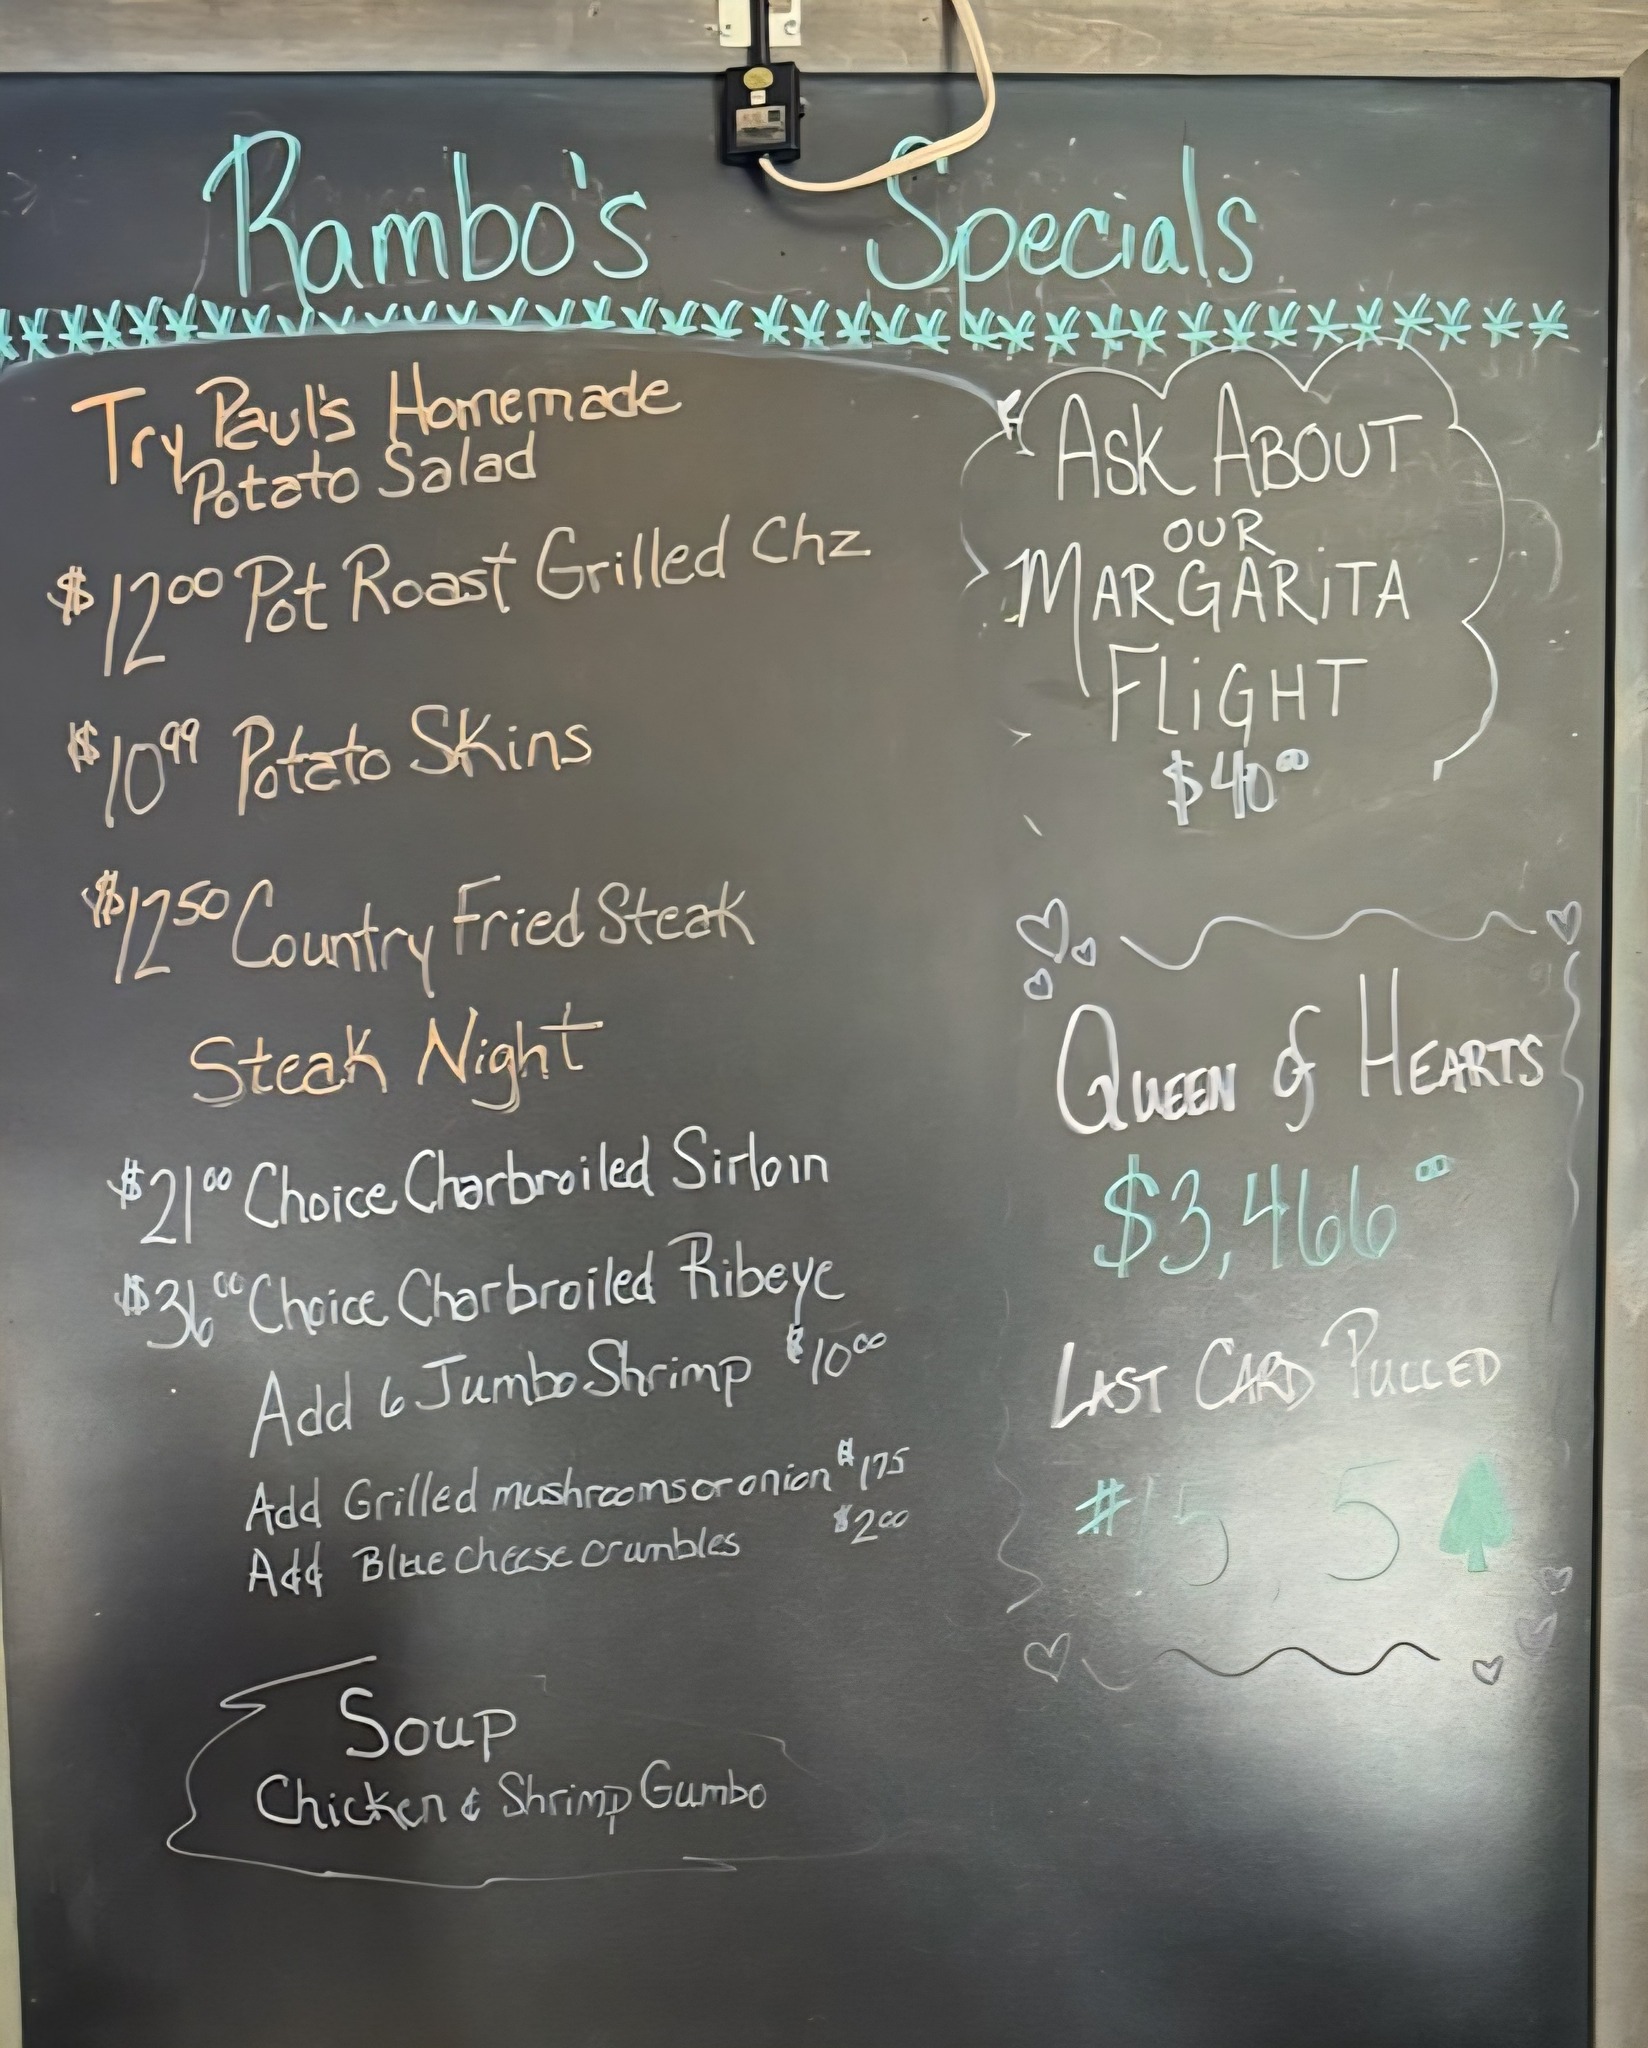 Rambo's Specials
Try Paul's Homemade
Potato Salad
$12⁰⁰ Pot Roast Grilled Chz
$10⁹⁹ Potato Skins
$12⁵⁰ Country Fried Steak
Steak Night
$21⁰⁰ Choice Charbroiled Sirloin
$36⁰⁰ Choice Charbroiled Ribeye
Add 6 Jumbo Shrimp $10⁰⁰
Add Grilled mushrooms or onion $1⁷⁵
Add Blue cheese crumbles $2⁰⁰
Soup
Chicken & Shrimp Gumbo
ASK ABOUT
OUR
MARGARITA
FLIGHT
$40⁰⁰
QUEEN of HEARTS
$3,466⁰⁰
LAST CARD PULLED
#15, 5♠